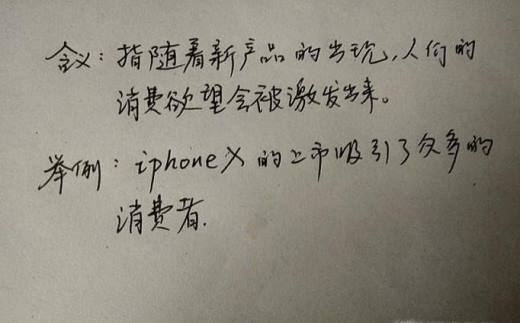 含义：指随着新产品的出现,人们的
消费欲望会被激发出来。
举例：iphoneX的上市吸引了众多的
消费者.